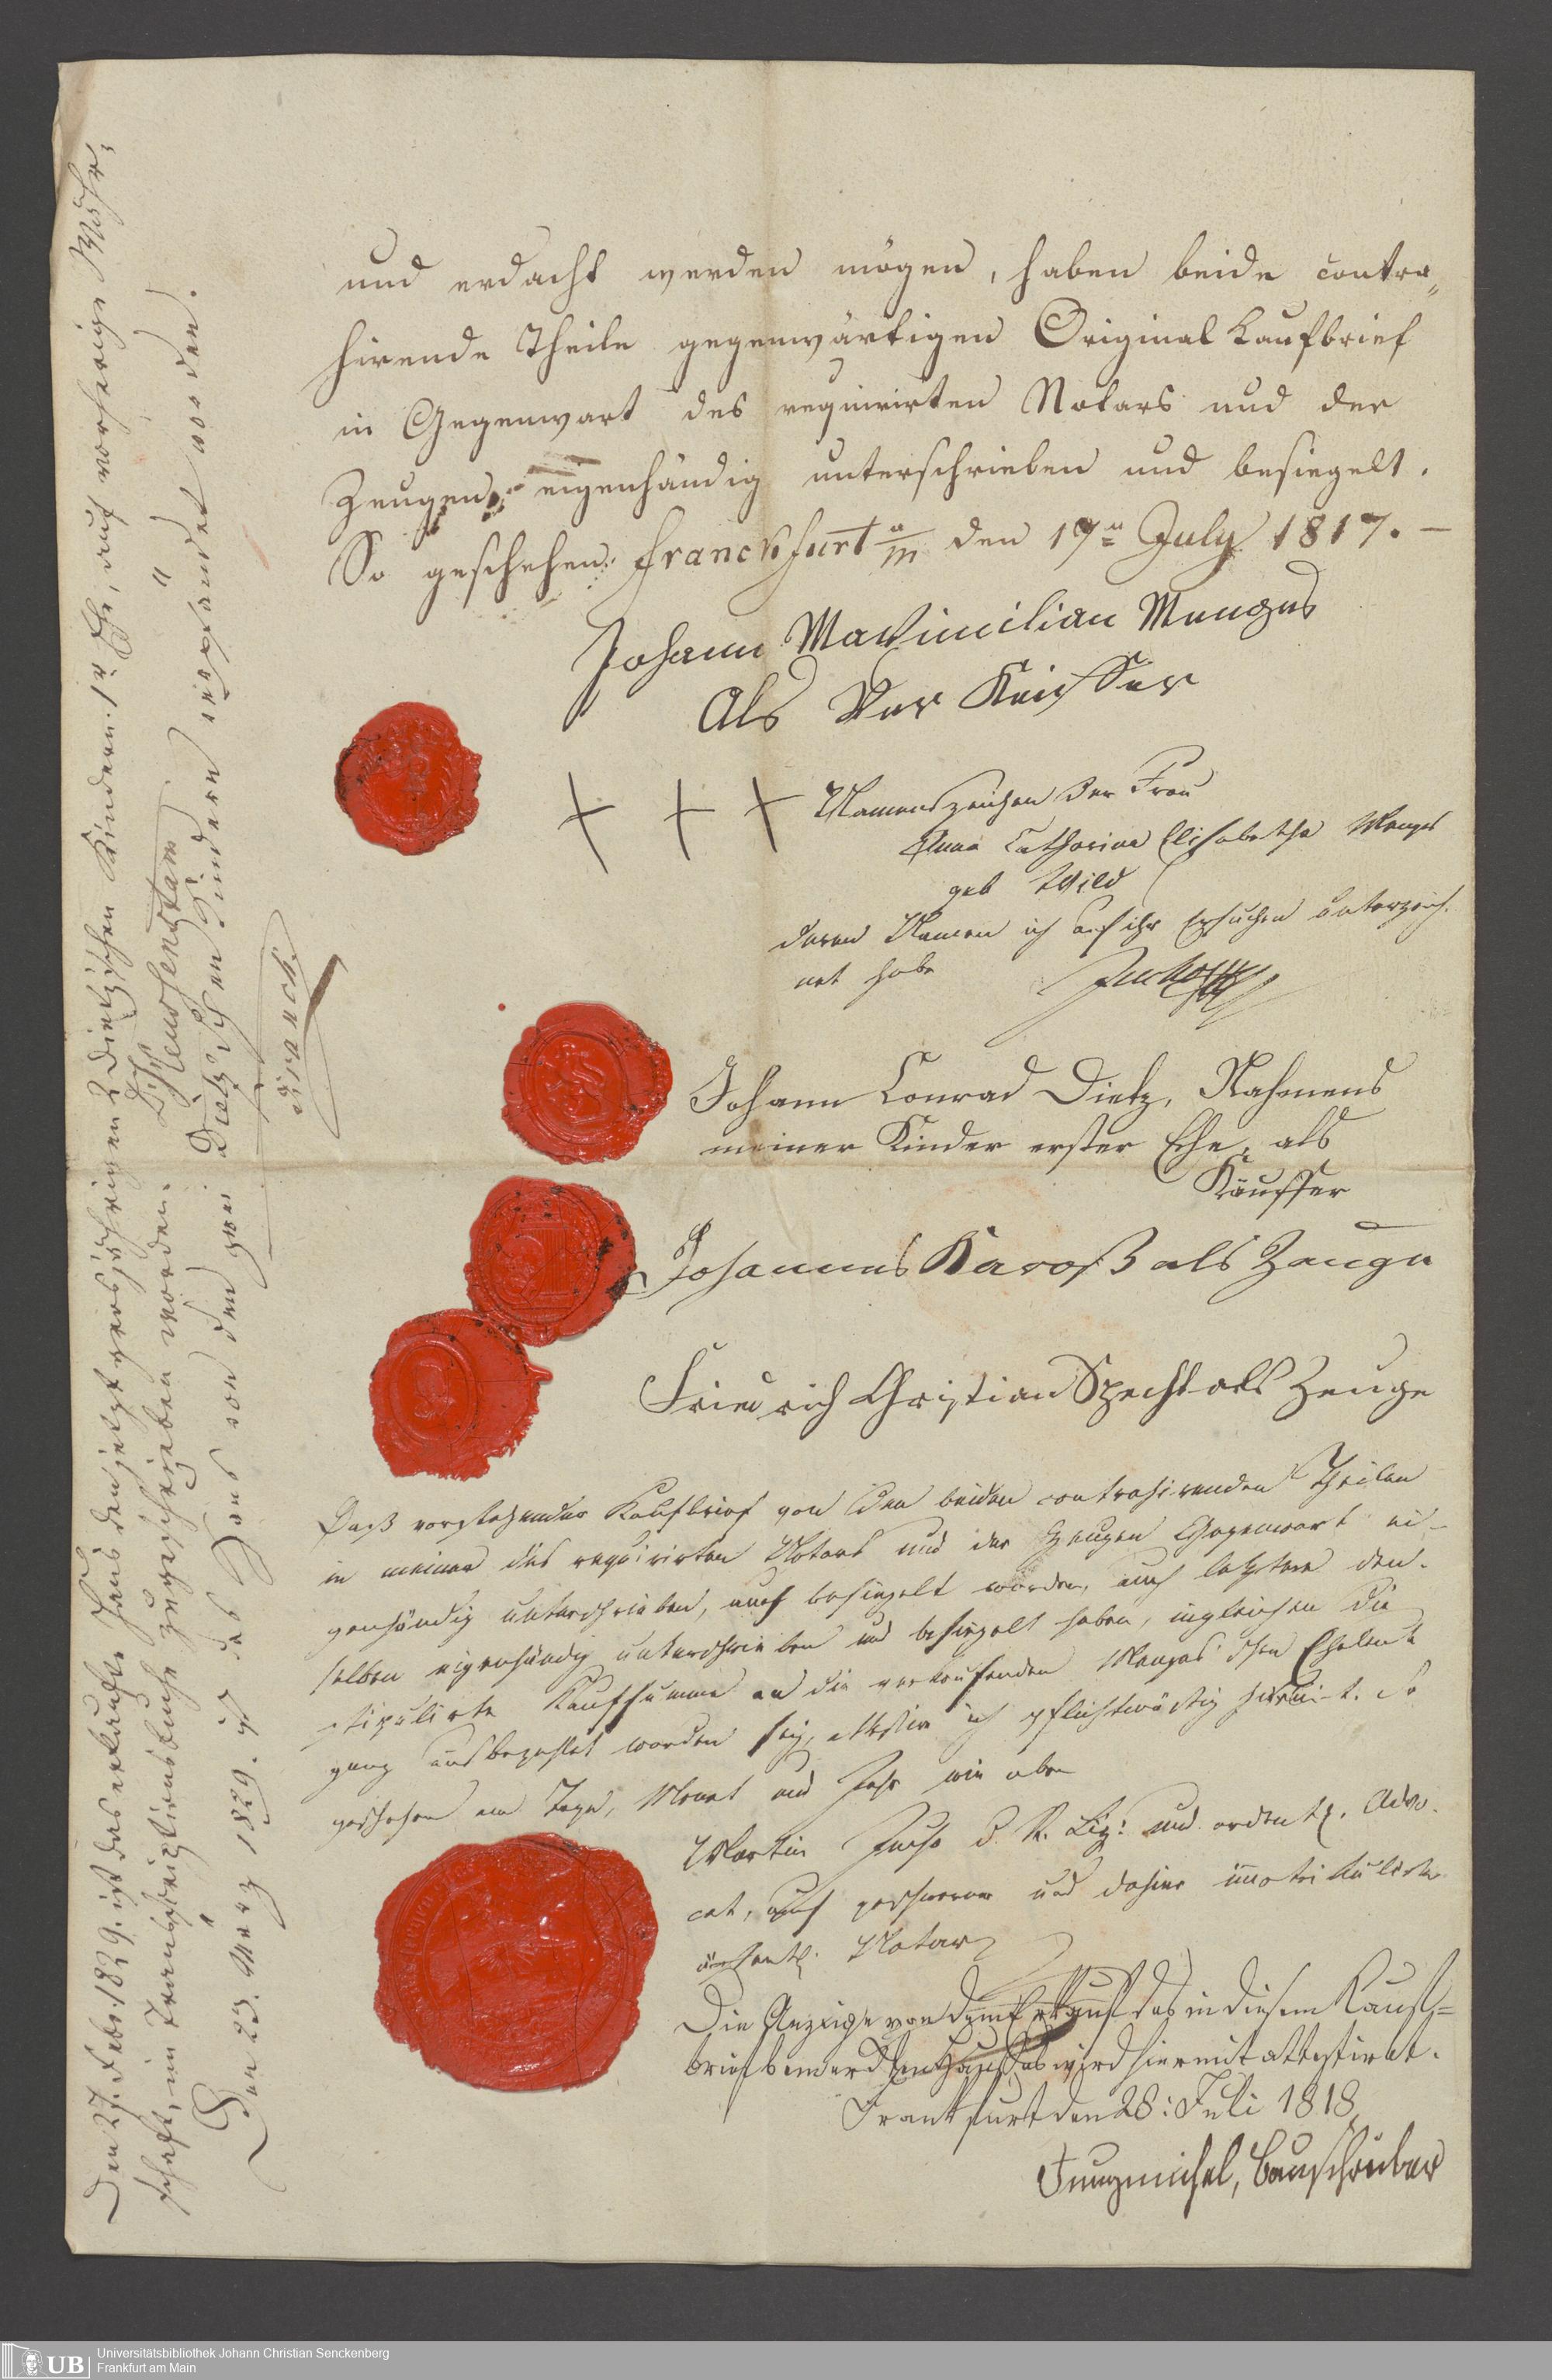 und erdacht werden mögen, haben beide contra„
hirende Theile gegenwärtigen Original Kaufbrief
in Gegenwart des requirirten Notars und der
Zeugen eigenhändig unterschrieben und besiegelt.
So geschehen. Franckfurt a/m den 17n July 1817. —
Johann Maximilian Menges
Als Ver Keiffer
+ + + Namenszeichen der Frau
Anna Catharina Elisabetha Menges
geb Wild
deren Namen ich auf ihr Ersuchen unterzeich-
net habe
Johann Conrad Dietz, Nahmens
meiner Kinder erster Ehe, als
Käuffer
Johannes Karoß als Zeuge
Friedrich Christian Specht als Zeuge
Daß vorstehender Kaufbrief von den beiden contrahirenden Theilen
in meiner des requirirten Notars und der Zeugen Gegenwart ei-
genhändig unterschrieben, auch besiegelt worden, auch letztere den-
selben eigenhändig unterschrieben und besiegelt haben, ingleichen die
stipulirte Kaufsumme an die verkaufenden Menges'schen Eheleute
ganz ausbezahlet worden sey, attestire ich pflichtmäsig hiermit. So
geschehen am Tage, Monat und Jahr wie oben
Martin B. R. Liz: und ordentl. Advo-
cat, auch geschworner und dahier immatrikulirter
öffentl. Notar
Die Anzeige von dem Erkauf des in diesem Kauf-
brief bemerdten Hauses wird hiermit attestiret.
Frankfurt den 28: Juli 1818
Jungmichel, Bauschreiber
Den 27. Febr. 1829. ist das erkaufte Haus den jetzt grosjährigen 2 Dietzischen Kindern 1r Ehe, auf vorherige Währ-
schaft, im Transscriptionsbuche zugeschrieben worden.
Den 23. März 1829. ist das Haus von den zwei Dietzischen Kindern verpfändet worden.
Franck
Universitätsbibliothek Johann Christian Senckenberg
UB Frankfurt am Main